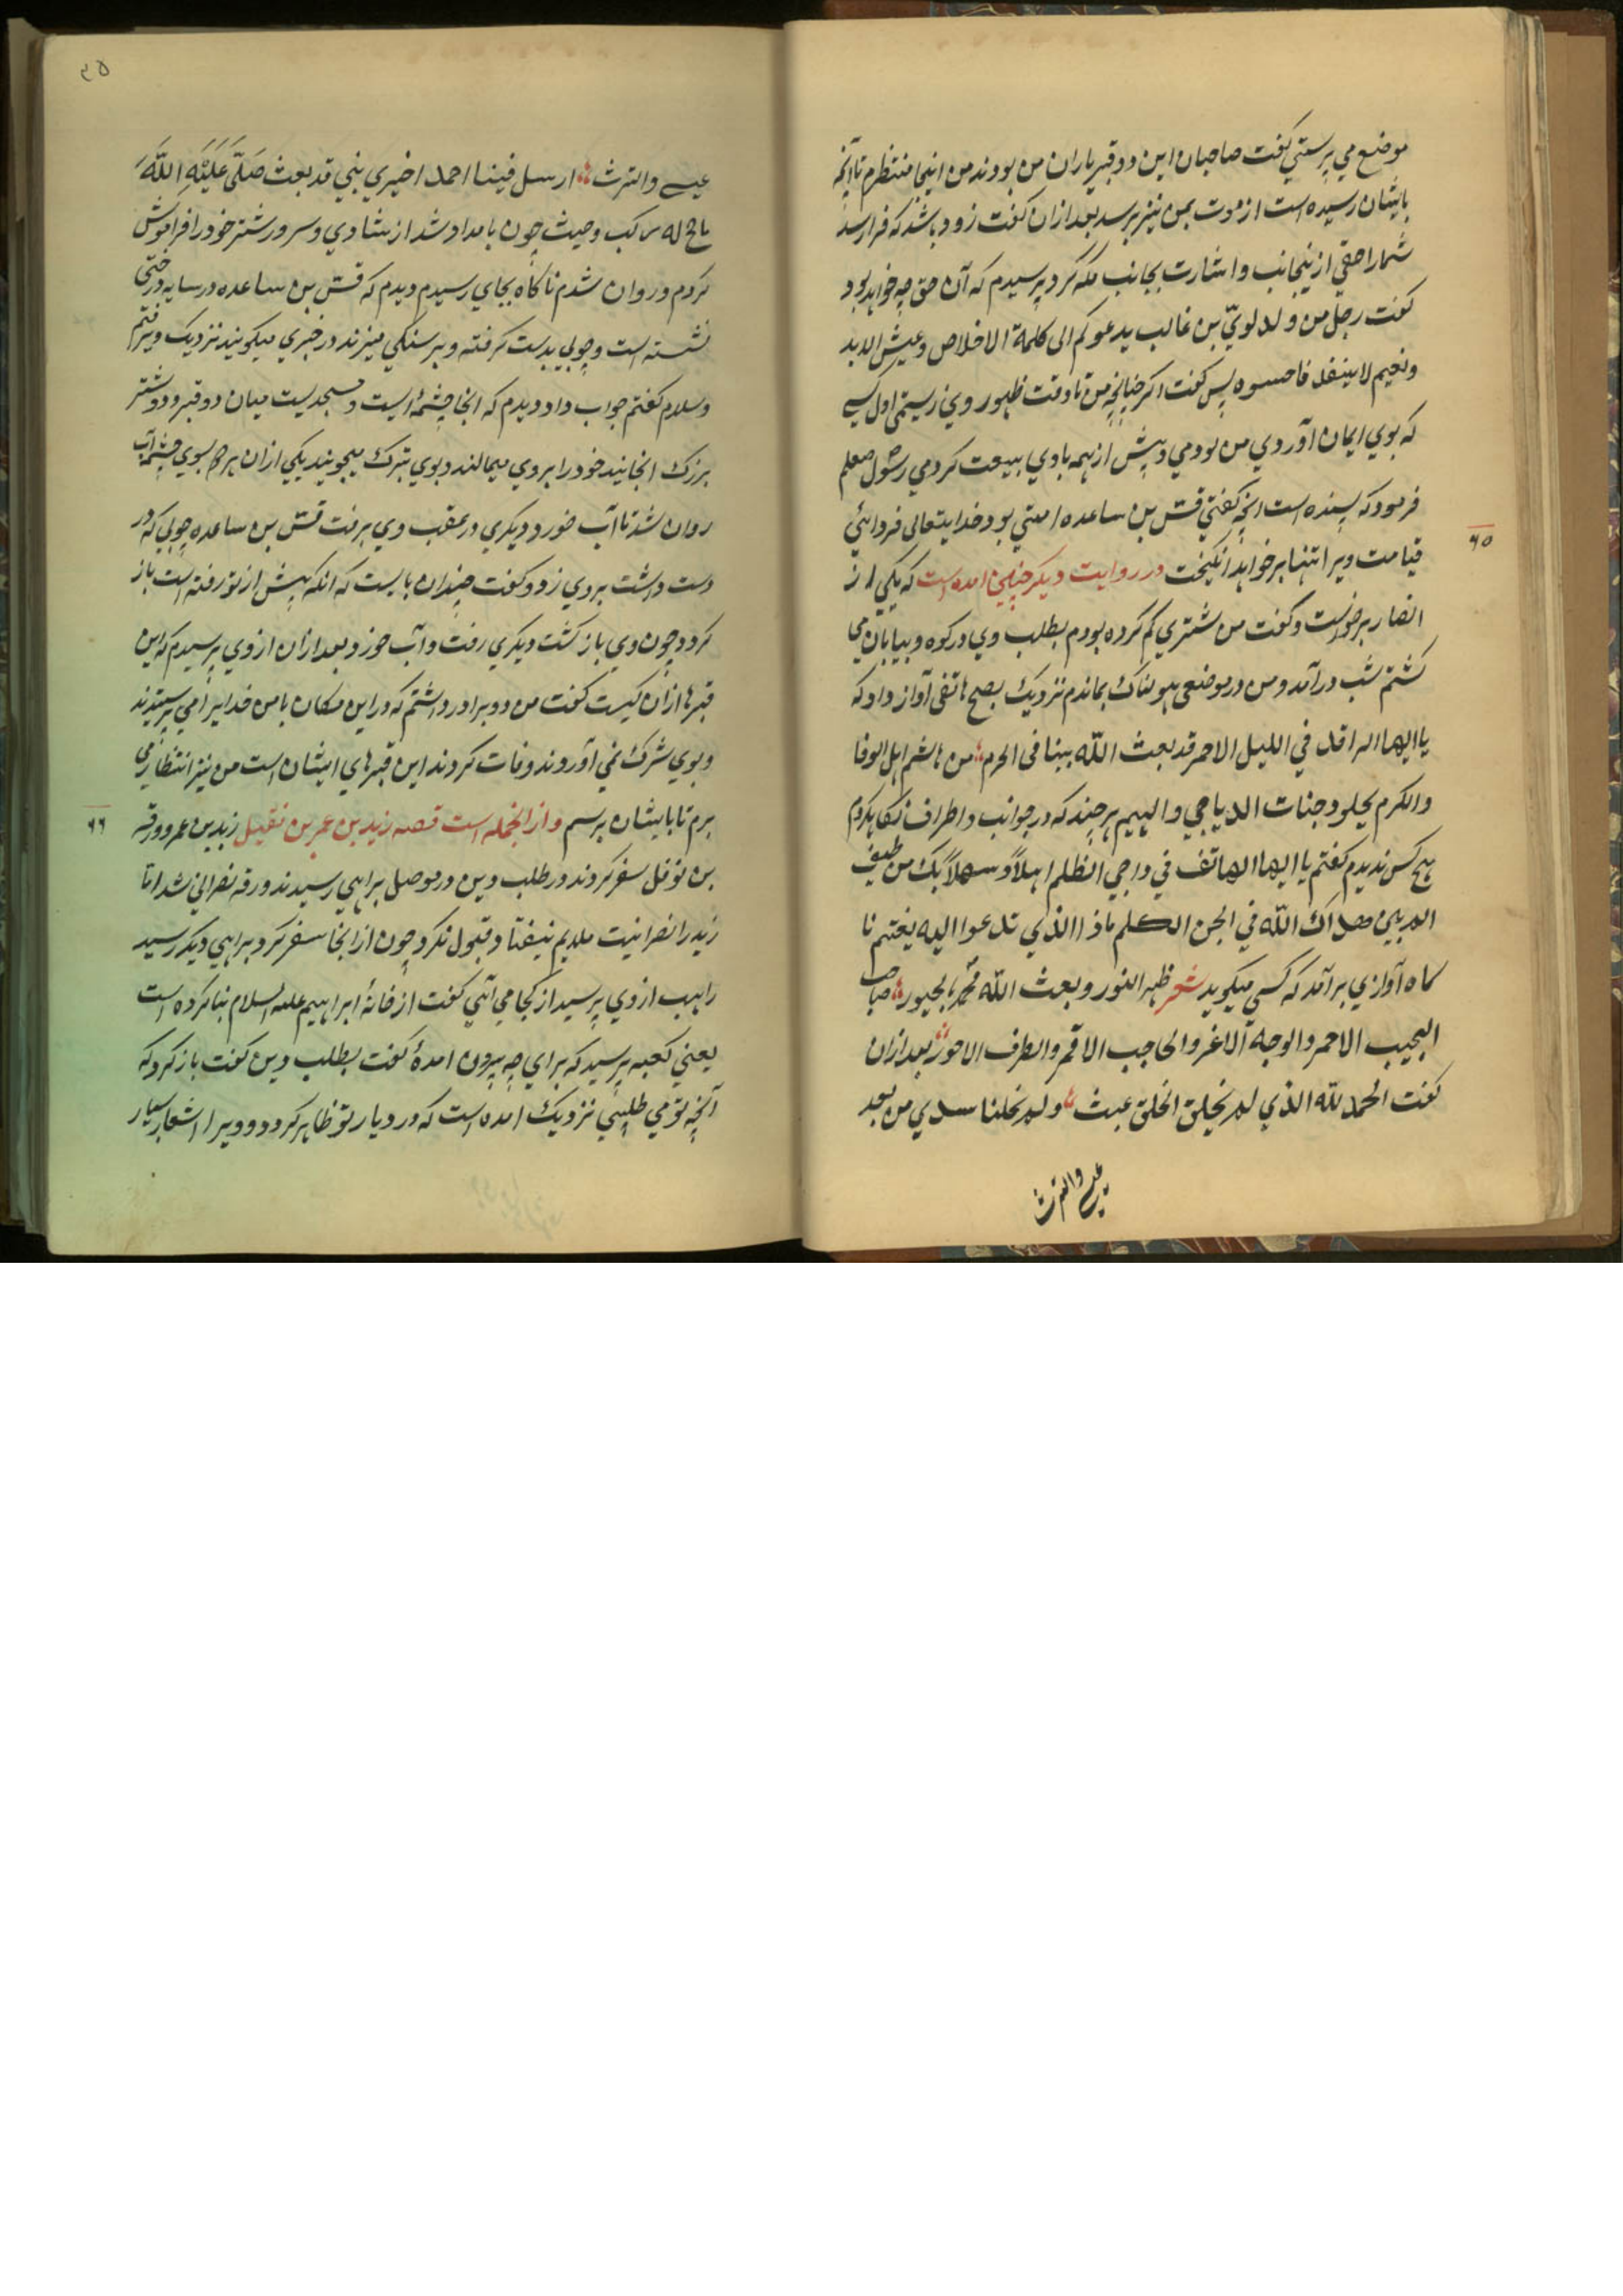 موضع می پرستی گفت صاحبان این دو قبر یاران من بودند من اینجا منتظرم تا آنچه
بایشان رسیده است از موت بمن نیز برسد بعد از آن گفت زود باشد که فرا رسد
شما را حقی ازینجانب و اشارت بجانب مکه کرد پرسیدم که آن حق چه خواهد بود
گفت رجل من ولد لویّ بن غالب یدعوکم الی کلمة الاخلاص و عیش الابد
و نعیم لا ینفد پس گفت اگر چنانچه من تا وقت ظهور وی زیستمی اول کسی
که بوی ایمان آوردی من بودمی و پیش از همه با وی بیعت کردمی رسول صلعم
فرمود که پسنده است آنچه گفتی قس بن ساعده امتی بود خدایتعالی فردای
۶۵
قیامت ویرا تنها بر خواهد انگیخت در روایت دیگر چنین آمده است که یکی از
انصار برخواست و گفت من شتری گم کرده بودم بطلب وی در کوه و بیابان می
گشتم شب درآمد و من در موضعی هولناک بماندم نزدیک بصبح هاتفی آواز داد که
یا ایها الراقد فی اللیل الاحمر قد بعث الله بینا فی الحرم من هاشم اهل الوفا
والکرم یجلو دجنات الدیاجی والبهیم هر چند که در جوانب و اطراف نگاه کردم
هیچ کس ندیدم گفتم یا ایها الهاتف فی داجی الظلم اهلاً و سهلاً بک من طیف
الم بین هداک الله فی لجن الکلم ماذا الذی تدعوا الیه یغتنم نا
گاه آوازی برآمد که کسی میگوید شعر ظهر النور و بعث الله محمد بالحبور صاحب
النجیب الاحمر والوجه الاغر والحاجب الاقمر والطرف الاحور بعد ازان
گفت الحمد لله الذی لم یخلق الخلق عبث و لم یخلنا سدی من بعد
عیسی والترث
۳۵
عیسی والترث ارسل فینا احمد اخیری نبی قد بعث صَلّی عَلَیْهِ اللهَ
ماج له رکب وحیث چون بامداد شد از شادی و سرور شتر خود را فراموش
کردم و روان شدم ناگاه بجای رسیدم دیدم که قس بن ساعده در سایه درختی
نشسته است و چوبی بدست گرفته و بر سنگی میزند در خبری میگویند نزدیک وی رفتم
و سلام گفتم جواب داد دیدم که انجا چشمه ایست و مسجدیست میان دو قبر و دو شتر
بزرگ انجایند خود را بروی میمالند و بوی تبرک میجویند یکی ازان هر دو بسوی چشمه آب
روان شد تا آب خورد دیگری در عقب وی برفت قس بن ساعده چوبی که در
دست داشت بروی زد و گفت چندان بایست که انکه پیش از تو رفته است باز
گردد چون وی بازگشت دیگری رفت و آب خورد بعد ازان از وی پرسیدم که این
قبرها ازان کیست گفت من دو برادر داشتم که در این مکان با من خدایرا می پرستیدند
و بوی شرک نمی آوردند وفات کردند این قبرهای ایشان است من نیز انتظار می
برم تا بایشان برسم و از انجمله است قصه زید بن عمر بن نفیل زید بن عمرو و ورقه
۶۶
بن نوفل سفر کردند در طلب دین در موصل براهبی رسیدند ورقه نصرانی شد اما
زید را نصرانیت ملایم نیفتاد و قبول نکرد چون از انجا سفر کرد براهبی دیگر رسید
راهب از وی پرسید از کجا می آئی گفت از خانهٔ ابراهیم علیه السلام بنا کرده است
یعنی کعبه پرسید که برای چه بیرون آمدهٔ گفت بطلب دین گفت باز گرد که
آنچه تو می طلبی نزدیک آمده است که در دیار تو ظاهر گردد و ویرا اشعار بسیار